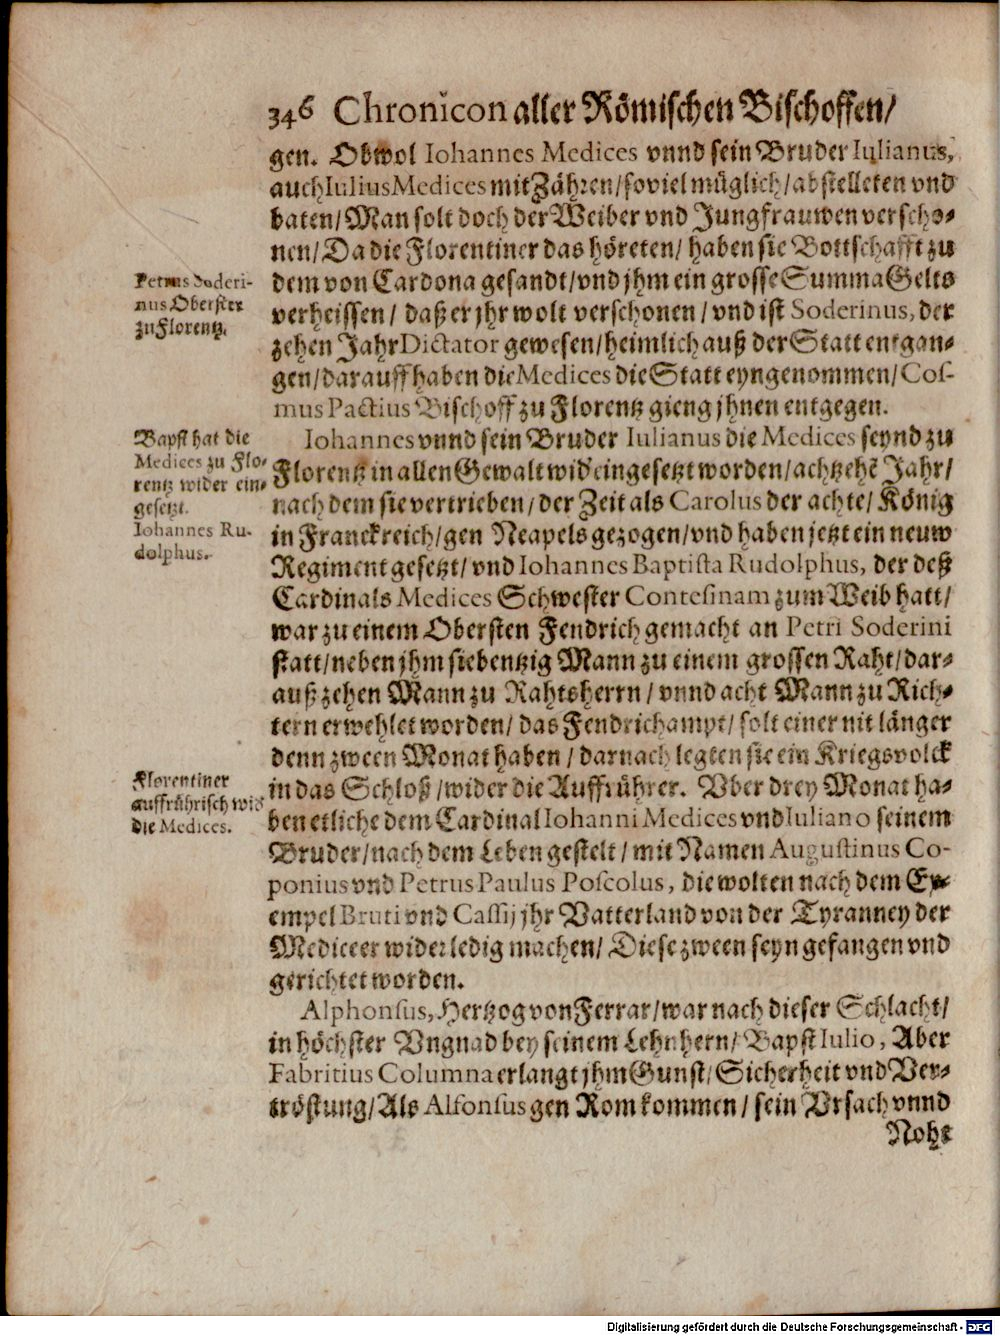 346 Chronicon aller Römischen Bischoffen/
gen. Obwol Iohannes Medices vnnd sein Bruder Iulianus,
auch Iulius Medices mit Zähren/ soviel müglich/ abstelleten vnd
baten/ Man solt doch der Weiber vnd Jungfrauwen verscho-
nen/ Da die Florentiner das höreten/ haben sie Bottschafft zu
dem von Cardona gesandt/ vnd jhm ein grosse Summa Gelts
verheissen/ daß er jhr wolt verschonen/ vnd ist Soderinus, der
zehen Jahr Dictator gewesen/ heimlich auß der Statt entgan-
gen/ darauff haben die Medices die Statt eyngenommen/ Cos-
mus Pactius Bischoff zu Florentz gieng jhnen entgegen.
Petrus Soderi-
nus Oberster
zu Florentz.
Iohannes vnnd sein Bruder Iulianus die Medices seynd zu
Florentz in allen Gewalt wid' eingesetzt worden/ achtzehē Jahr/
nach dem sie vertrieben/ der Zeit als Carolus der achte/ König
in Franckreich/ gen Neapels gezogen/ vnd haben jetzt ein neuw
Regiment gesetzt/ vnd Iohannes Baptista Rudolphus, der deß
Cardinals Medices Schwester Contesinam zum Weib hatt/
war zu einem Obersten Fendrich gemacht an Petri Soderini
statt/ neben jhm siebentzig Mann zu einem grossen Raht/ dar-
auß zehen Mann zu Rahtsherrn/ vnnd acht Mann zu Rich-
tern erwehlet worden/ das Fendrichampt/ solt einer nit länger
denn zween Monat haben/ darnach legten sie ein Kriegsvolck
in das Schloß/ wider die Auffrührer. Vber drey Monat ha-
ben etliche dem Cardinal Iohanni Medices vnd Iuliano seinem
Bruder/ nach dem Leben gestelt/ mit Namen Augustinus Co-
ponius vnd Petrus Paulus Poscolus, die wolten nach dem Ex-
empel Bruti vnd Cassij jhr Vatterland von der Tyranney der
Mediceer wider ledig machen/ Diese zween seyn gefangen vnd
gerichtet worden.
Bapst hat die
Medices zu Flo-
rentz wider ein-
gesetzt.
Iohannes Ru-
dolphus.
Florentiner
auffrührisch wid'
die Medices.
Alphonsus, Hertzog von Ferrar/ war nach dieser Schlacht/
in höchster Vngnad bey seinem Lehnhern/ Bapst Iulio, Aber
Fabritius Columna erlangt jhm Gunst/ Sicherheit vnd Ver-
tröstung/ Als Alfonsus gen Rom kommen/ sein Vrsach vnnd
Noht
Digitalisierung gefördert durch die Deutsche Forschungsgemeinschaft - DFG